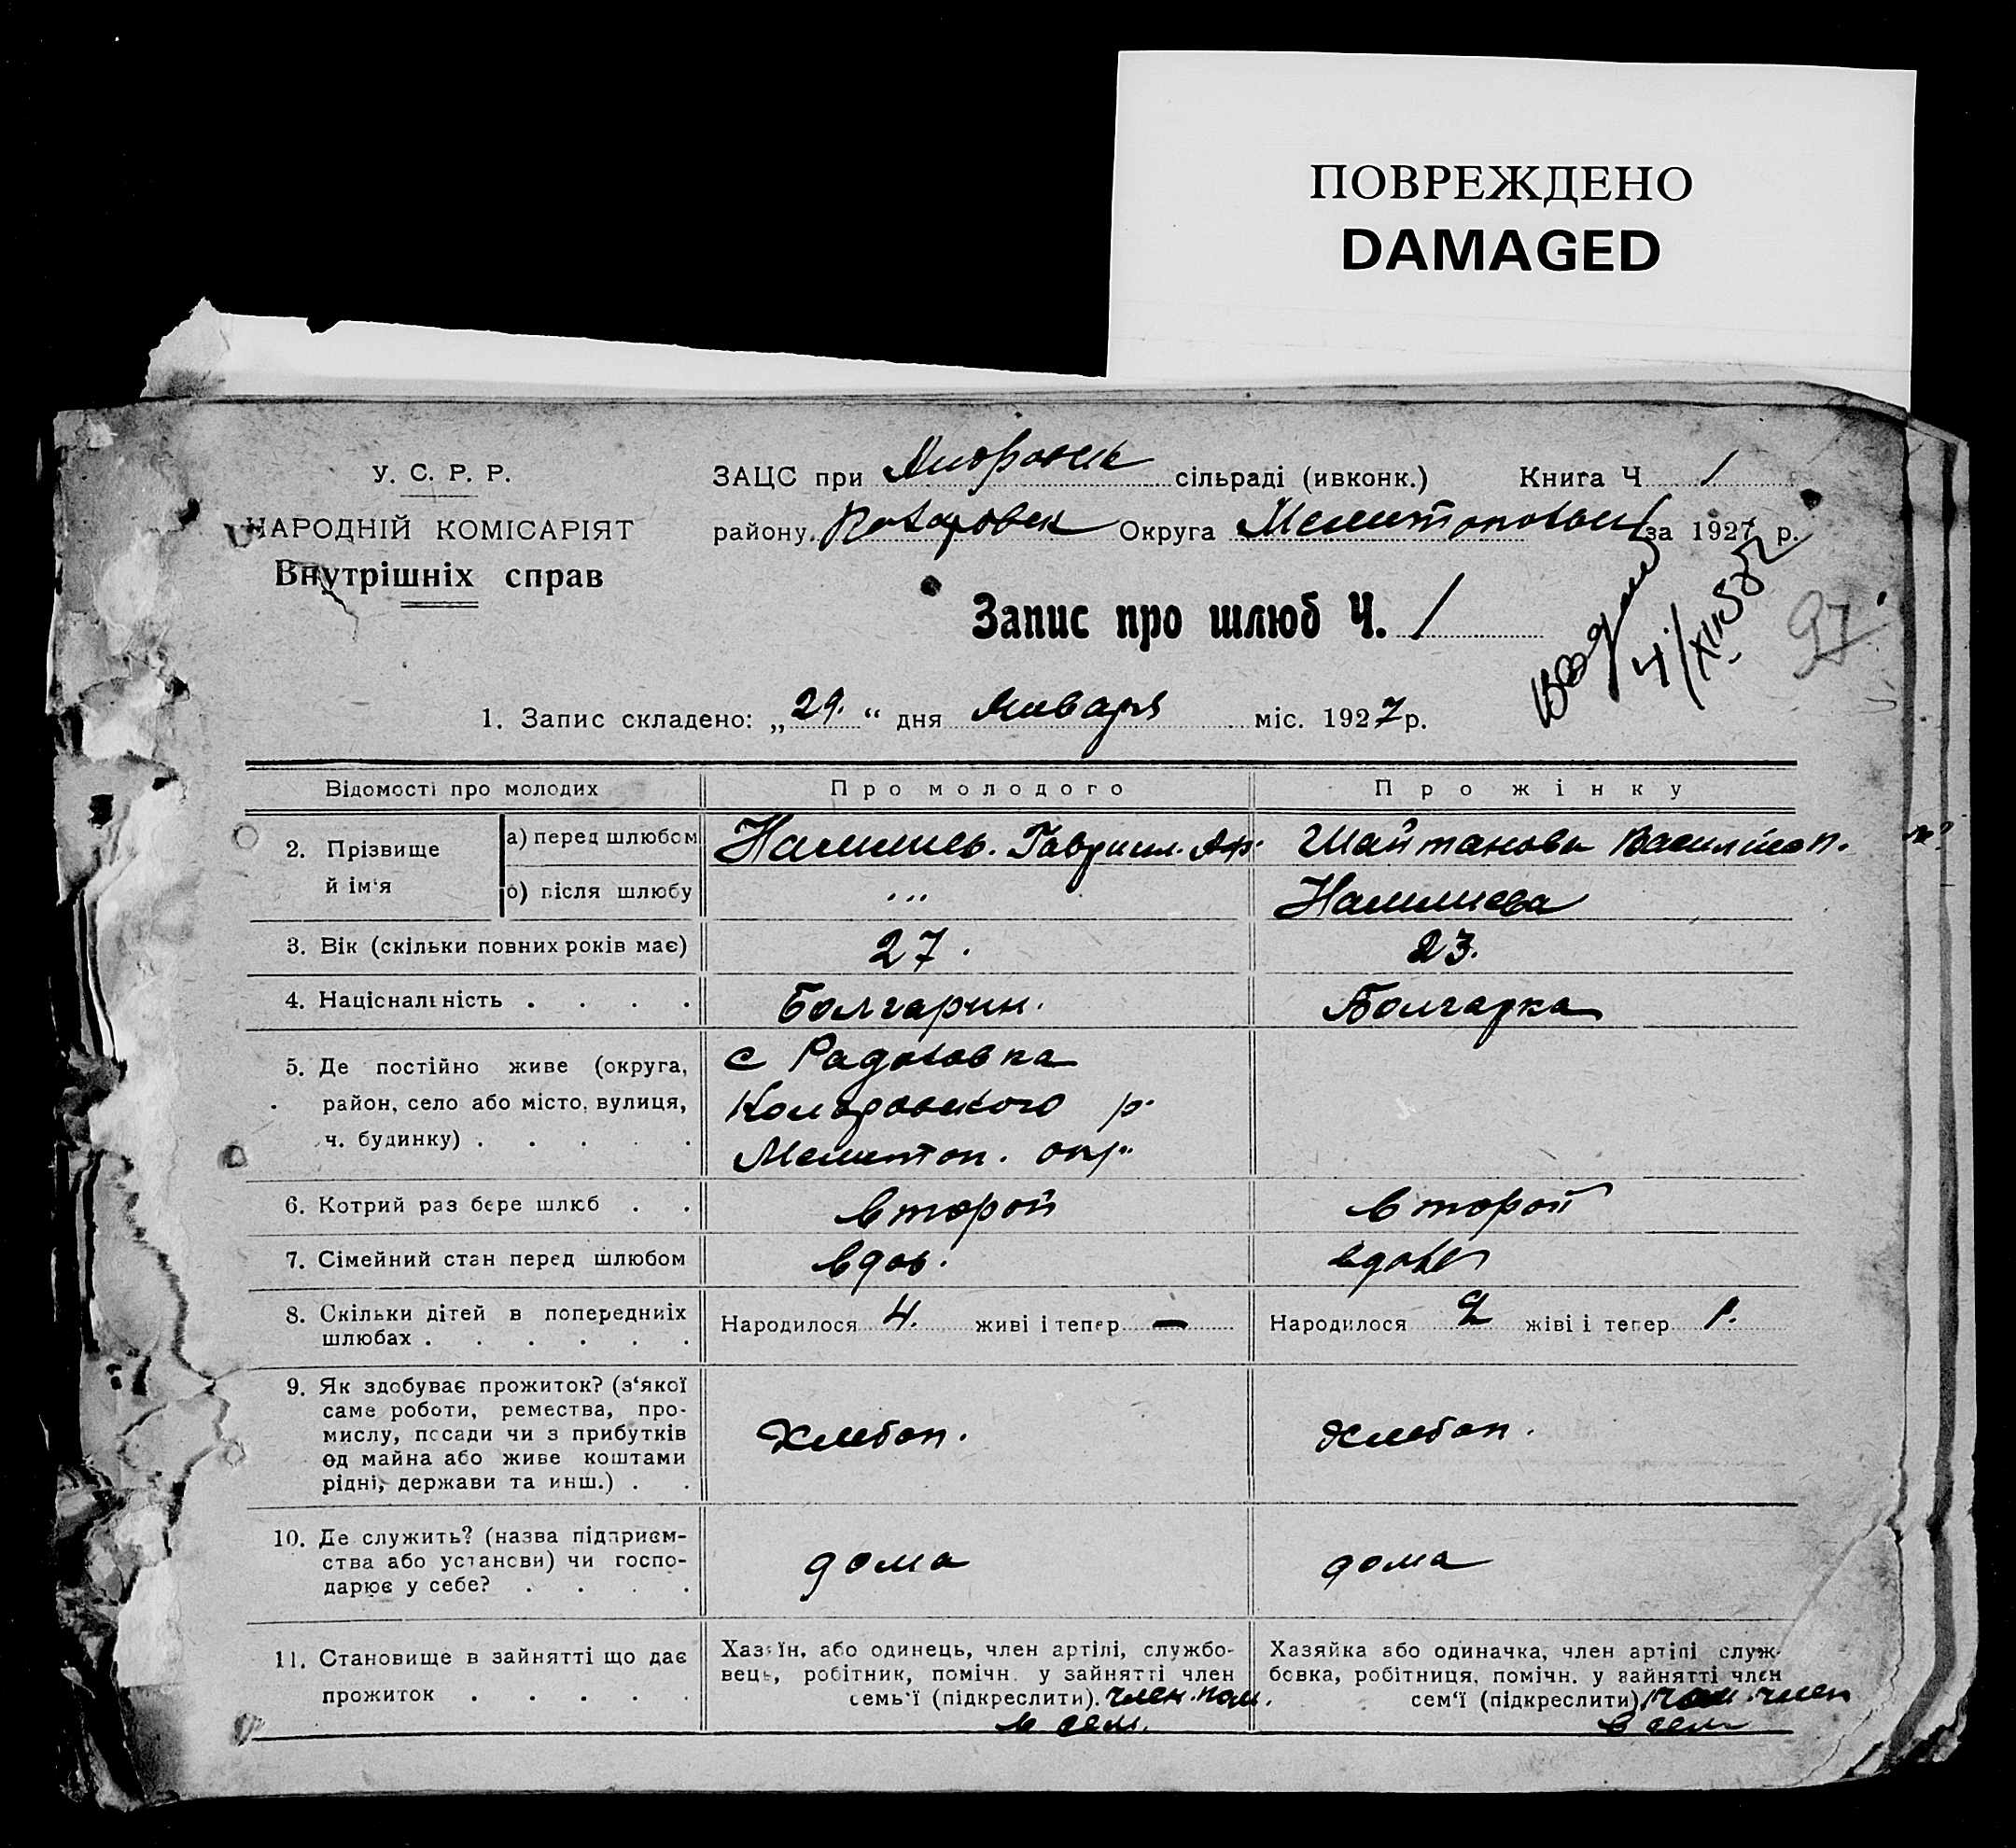 ПОВРЕЖДЕНО
DAMAGED
У. С. Р. Р.
НАРОДНІЙ КОМІСАРІЯТ
Внутрішніх справ
ЗАЦС при сільраді (ивконк.) Книга Ч 1
району Округа за 1927 р.
Запис про шлюб Ч. 1
97
1. Запис складено: „29.“ дня января міс. 1927 р.
Відомості про молодих Про молодого Про жінку
2. Прізвище й ім‘я
а) перед шлюбом Гавриил. Шайтанова
б) після шлюбу ...
3. Вік (скільки повних років має) 27. 23.
4. Національність . . . . Болгарин. Болгарка
5. Де постійно живе (округа, с Радоловка
район, село або місто, вулиця, р.
ч. будинку) . . . . . Мелитоп. окр.
6. Котрий раз бере шлюб . . второй второй
7. Сімейний стан перед шлюбом вдов. вдова
8. Скільки дітей в попередніх
шлюбах . . . . . . Народилося 4. живі і тепер — Народилося 2 жіві і тепер 1.
9. Як здобуває прожиток? (з‘якої
саме роботи, ремества, про-
мислу, посади чи з прибутків
од майна або живе коштами
рідні, держави та инш.) . . Хлебоп. Хлебоп.
10. Де служить? (назва підприєм-
ства або установи) чи госпо-
дарює у себе? . . . . дома дома
11. Становище в зайнятті що дає
прожиток . . . . .
Хазяїн, або одинець, член артілі, службо-
вець, робітник, помічн. у зайнятті член
семь‘ї (підкреслити). член. пом.
в сем.
Хазяйка або одиначка, член артілі служ-
бовка, робітниця, помічн. у зайнятті член
сем‘ї (підкреслити) пом. член
в сем